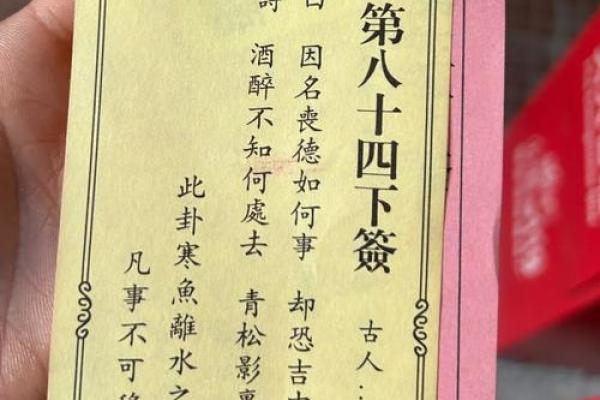 第八十四下簽 古人：
曰 因名喪德如何事 却恐吉
詩 酒醉不知何處去 青松影裏
此卦寒魚離水之
凡事不可